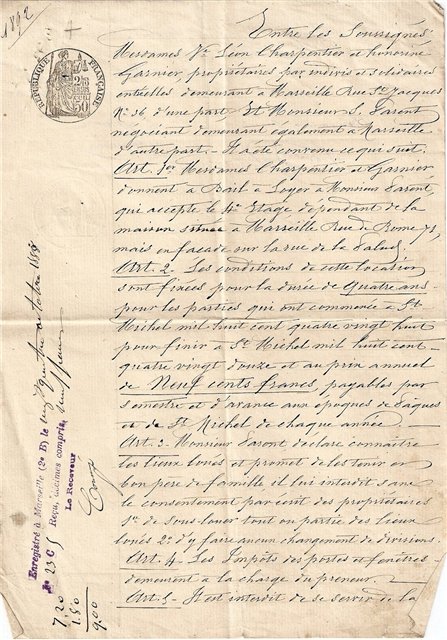 1892
RÉPUBLIQUE FRANÇAISE
Entre les Soussignés
Merdames Vve Léon Charpentier et honorine
Garnier, propriétaires par indivis et solidaires
entrelles demeurant à Marseille Rue St Jacques
No 36 d'une part Et Monsieur S. Parent
negociant demeurant également à Marseille
d'autre part. - Il a été convenu ce qui suit.
Art. 1er Merdames Charpentier et Garnier
donnent à Bail à Loyer à Monsieur Parent
qui accepte le 4e Etage dépendant de la
maison située à Marseille Rue de Rome 71,
mais en facade sur la rue de la Palud.
Art. 2 - Les conditions de cette location
sont fixées pour la durée de quatre ans
pour les parties qui ont commencé à St
Michel mil huit cent quatre vingt huit
pour finir à St Michel mil huit cent
quatre vingt douze et au prix annuel
de Neuf cents francs, payables par
semestre et d'avance aux époques de Pâques
et de St Michel de chaque année
Art. 3 - Monsieur Parent declare connaître
les lieux loués et promet de les tenir en
bon pere de famille il lui interdit sans
le consentement par écrit des propriétaires
1o de sous louer tout ou partie des lieux
loués 2o d'y faire aucun changement de divisions.
Art. 4. Les Impôts des portes et fenêtres
demeurent à la charge du preneur.
Art. 5 - Il est interdit de se servir de la
Enregistré à Marseille (2e B) le vingt quatre octobre 1888
No 23 C
Reçu, décimes compris, neuf francs
Le Receveur
7,20
1.80
9.00